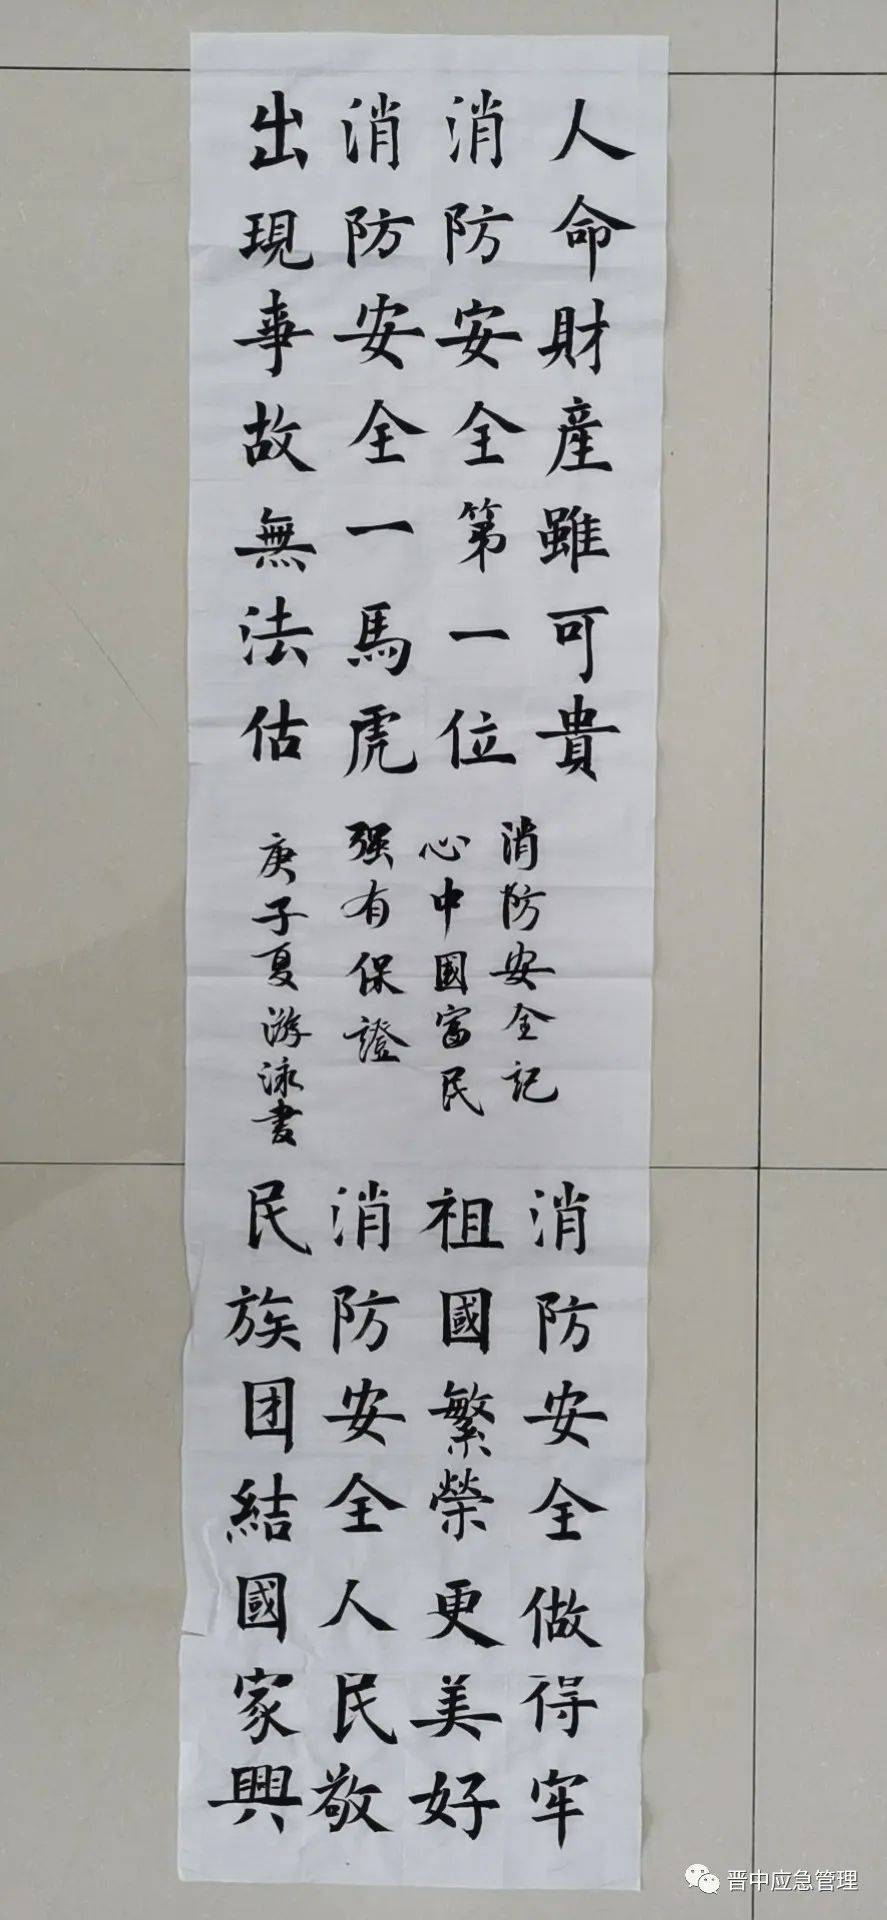 人命財產雖可貴
消防安全第一位
消防安全一馬虎
出現事故無法估
消防安全記
心中國富民
强有保證
庚子夏游泳書
消防安全做得牢
祖國繁榮更美好
消防安全人民敬
民族团結國家興
晋中应急管理